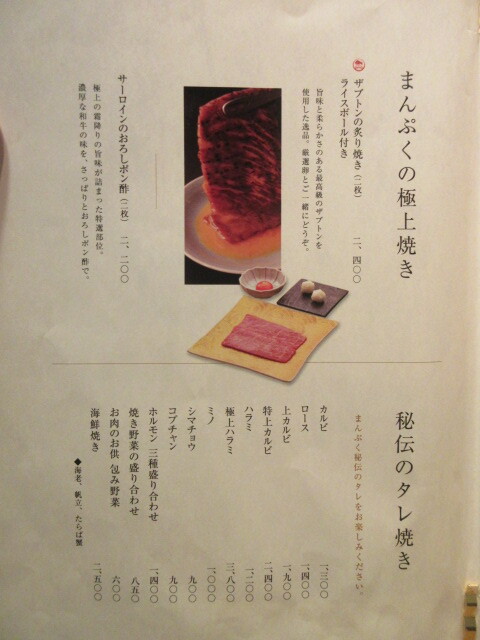 まんぷくの極上焼き
ザブトンの炙り焼き(二枚) 二、四〇〇
ライスボール付き
旨味と柔らかさのある最高級のザブトンを
使用した逸品。厳選卵とご一緒にどうぞ。
サーロインのおろしポン酢(三枚) 二、二〇〇
極上の霜降りの旨味が詰まった特選部位。
濃厚な和牛の味を、さっぱりとおろしポン酢で。
秘伝のタレ焼き
まんぷく秘伝のタレをお楽しみください。
カルビ 一、三〇〇
ロース 一、四〇〇
上カルビ 一、九〇〇
特上カルビ 二、四〇〇
ハラミ 一、二〇〇
極上ハラミ 三、八〇〇
ミノ 一、〇〇〇
シマチョウ 九〇〇
コプチャン 九〇〇
ホルモン 三種盛り合わせ 一、四〇〇
焼き野菜の盛り合わせ 八五〇
お肉のお供 包み野菜 六〇〇
海鮮焼き 二、五〇〇
◆海老、帆立、たらば蟹